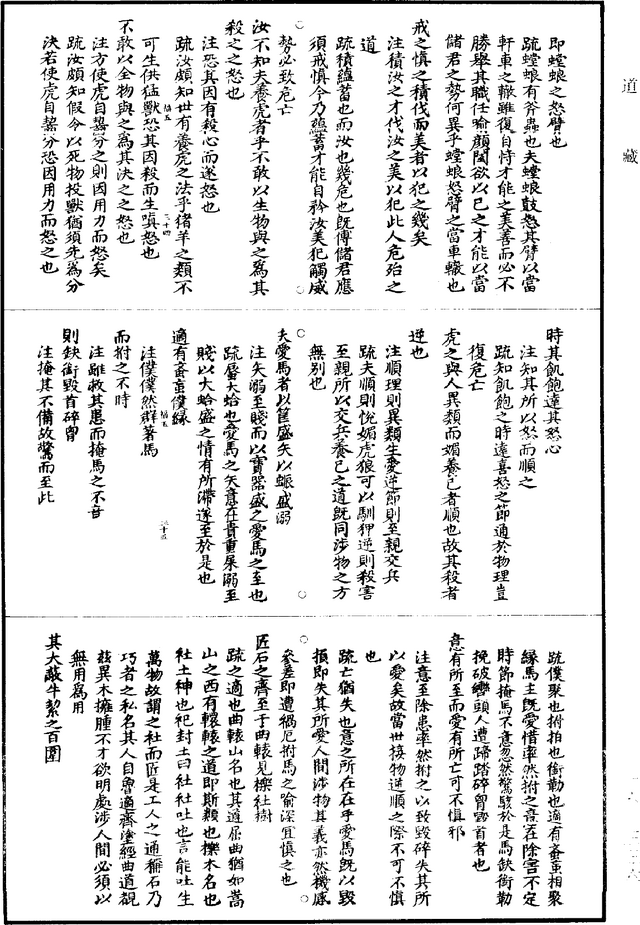 道藏
即螳蜋之怒臂也
疏螳蜋有斧蟲也夫螳蜋鼓怒其臂以當
軒車之轍雖復自恃才能之美善而必不
勝舉其職任喻顏闔欲以己之才能以當
儲君之勢何異乎螳蜋怒臂之當車轍也
戒之慎之積伐而美者以犯之幾矣
注積汝之才伐汝之美以犯此人危殆之
道
疏積蘊蓄也而汝也幾危也既傅儲君應
須戒慎今乃蘊蓄才能自矜汝美犯觸威
勢必致危亡
汝不知夫養虎者乎不敢以生物與之爲其
殺之之怒也
注恐其因有殺心而遂怒也
疏汝頗知世有養虎之法乎猪羊之類不
可生供猛獸恐其因殺而生嗔怒也
不敢以全物與之爲其決之之怒也
注方使虎自齧分之則因用力而怒矣
疏汝頗知假令以死物投獸猶須先爲分
決若使虎自齧分恐因用力而怒之也
時其飢飽達其怒心
注知其所以怒而順之
疏知飢飽之時達喜怒之節通於物理豈
復危亡
虎之與人異類而媚養己者順也故其殺者
逆也
注順理則異類生愛逆節則至親交兵
疏夫順則悅媚虎狼可以馴狎逆則殺害
至親所以交兵養己之道既同涉物之方
無別也
夫愛馬者以筐盛矢以蜄盛溺
注矢溺至賤而以寶器盛之愛馬之至也
疏蜃大蛤也愛馬之矢意在貴重屎溺至
賤以大蛤盛之情有所滯遂至於是也
適有蚉虻僕緣
注僕僕然群著馬
而拊之不時
注雖救其患而掩馬之不意
則缺銜毀首碎胷
注掩其不備故驚而至此
疏僕聚也拊拍也銜勒也適有蚉虻相聚
緣馬主既愛惜率然拊之意在除害不定
時節掩馬不意忽然驚駭於是馬缺銜勒
挽破轡頭人遭蹄踏碎胷毀首者也
意有所至而愛有所亡可不慎邪
注意至除患率然拊之以致毀碎失其所
以愛矣故當世接物逆順之際不可不慎
也
疏亡猶失也意之所在在乎愛馬既以毀
損即失其所愛人間涉物其義亦然機感
參差即遭禍厄拊馬之喻深宜慎之也
匠石之齊至于曲轅見櫟社樹
疏之適也曲轅山名也其道屈曲猶如嵩
山之西有轘轅之道即斯類也櫟木名也
社土神也祀封土曰社社吐也言能吐生
萬物故謂之社而匠是工人之通稱石乃
巧者之私名其人自魯適齊塗經曲道覩
茲異木擁腫不才欲明處涉人間必須以
無用爲用
其大蔽牛絜之百圍